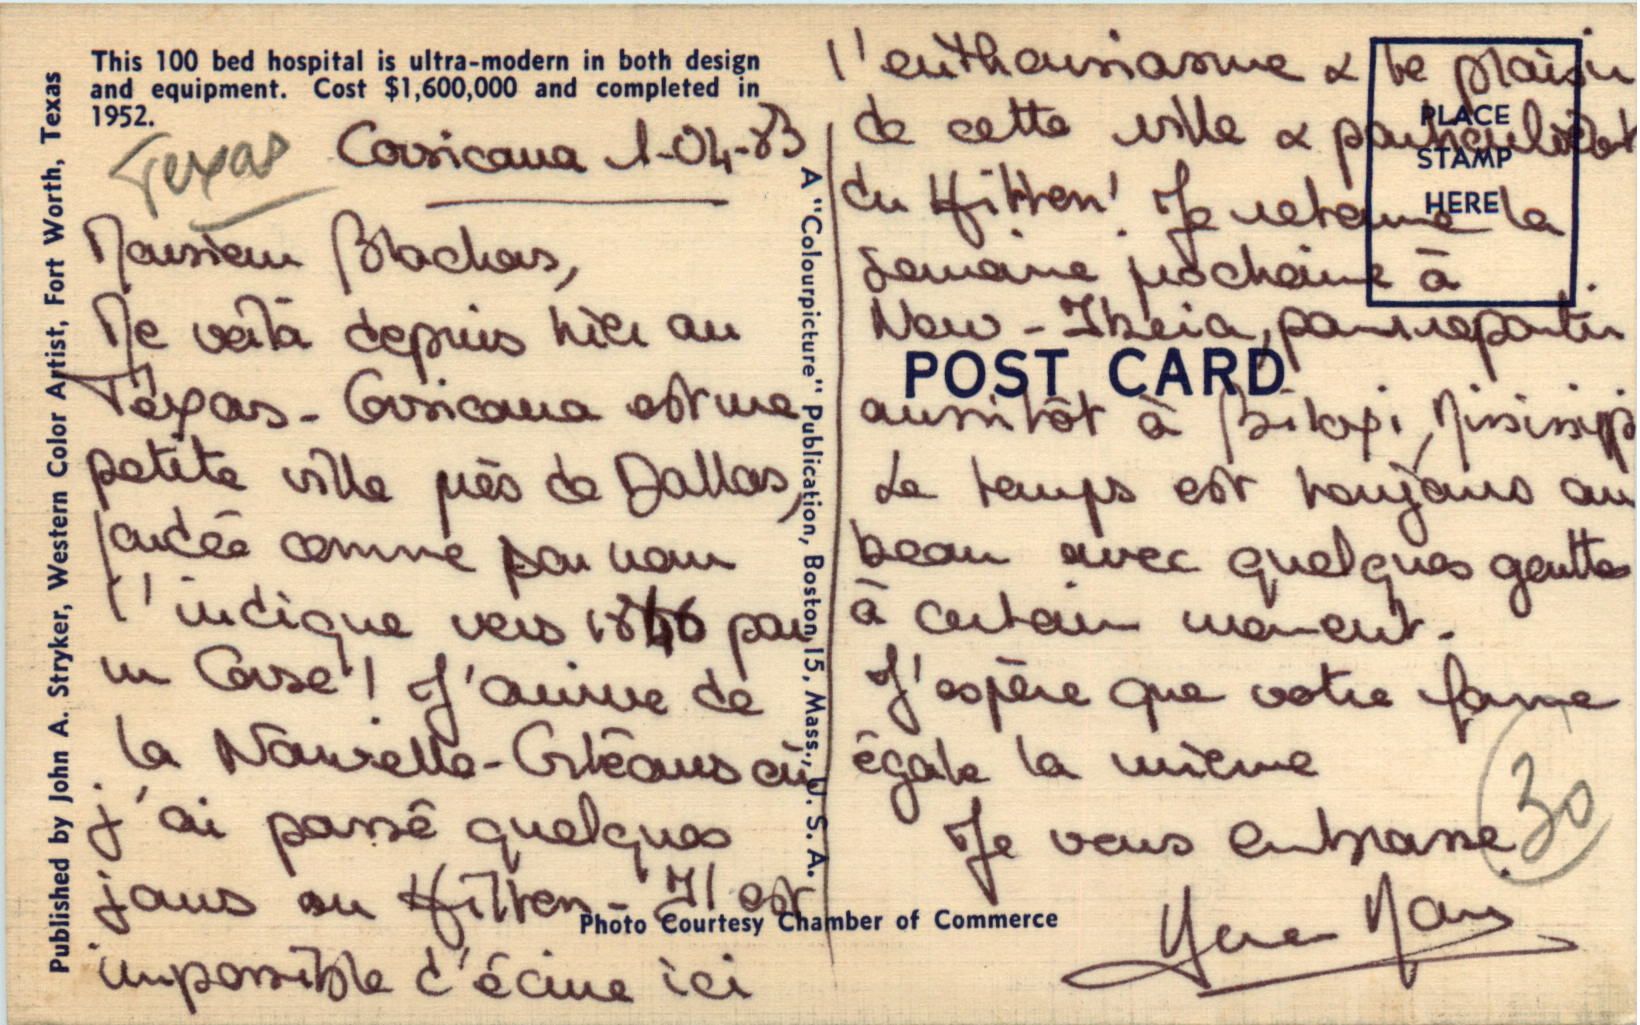 This 100 bed hospital is ultra-modern in both design
and equipment. Cost $1,600,000 and completed in
1952.
Texas
Corsicana 1-04-83
Monsieur Blachas,
Me voilà depuis hier au
Téxas - Corsicana est une
petite ville près de Dallas,
fondée comme son nom
l'indique vers 1846 par
un Corse ! J'arrive de
la Nouvelle-Orléans où
j'ai passé quelques
jours au Hilton - Il est
impossible d'écrire ici
l'enthousiasme & le plaisir
de cette ville & particulièrt
du Hilton ! Je retourne la
semaine prochaine à
New-Iberia, pour repartir
aussitôt à Biloxi, Missisippi
Le temps est toujours au
beau avec quelques gouttes
à certain moment.
J'espère que votre forme
égale la mienne
Je vous embrasse.
30
PLACE
STAMP
HERE
POST CARD
Published by John A. Stryker, Western Color Artist, Fort Worth, Texas
A "Colourpicture" Publication, Boston 15, Mass., U. S. A.
Photo Courtesy Chamber of Commerce